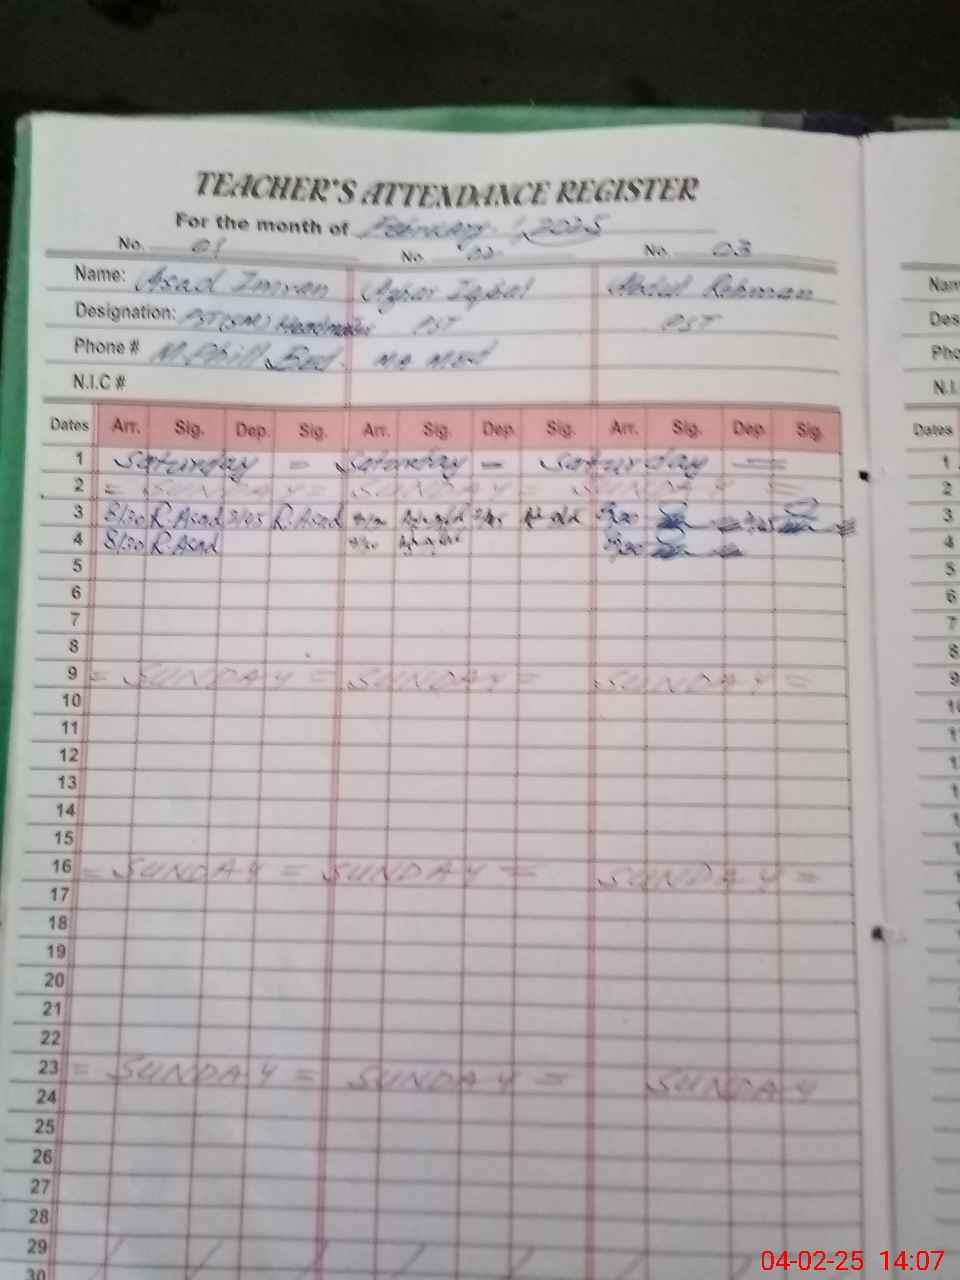 TEACHER'S ATTENDANCE REGISTER
For the month of February, 2025
No. 01 No. 02 No. 03
Name: Asad Imran Azhar Iqbal Abdul Rehman
Designation: PST Headmaster PST PST
Phone # M.Phill Bed. MA Med
N.I.C #
Dates Arr. Sig. Dep. Sig. Arr. Sig. Dep. Sig. Arr. Sig. Dep. Sig.
1 Saturday - Saturday - Saturday =
2 = SUNDAY = SUNDAY = SUNDAY =
3 8/30 R.Asad R.Asad
4 8/30 R.Asad
5
6
7
8
9 = SUNDAY = SUNDAY = SUNDAY =
10
11
12
13
14
15
16 = SUNDAY = SUNDAY = SUNDAY =
17
18
19
20
21
22
23 = SUNDAY = SUNDAY = SUNDAY
24
25
26
27
28
29
30
Dates
1
2
3
4
5
6
7
8
9
04-02-25 14:07